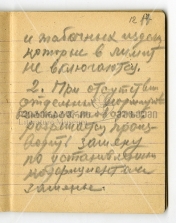 12
и табачных издел
которые в лимит
не включаются.
2. При отсутствии
отдельных
разрешать произ-
водить замену
по установленным
коэффициентам
замены.